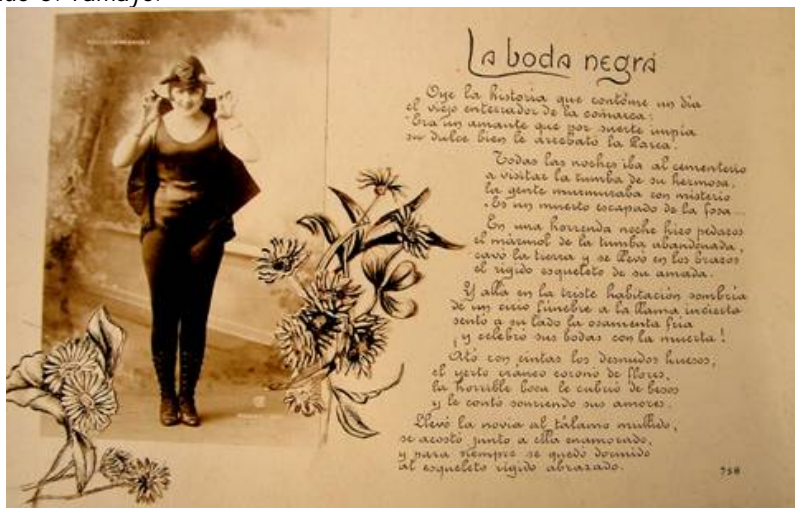 La boda negra
Oye la historia que contóme un día
el viejo enterrador de la comarca:
"Era un amante que por suerte impía
su dulce bien le arrebató la Parca.
Todas las noches iba al cementerio
a visitar la tumba de su hermosa,
la gente murmuraba con misterio
"Es un muerto escapado de la fosa...
En una horrenda noche hizo pedazos
el mármol de la tumba abandonada,
cavó la tierra y se llevó en los brazos
el rígido esqueleto de su amada.
Y allá en la triste habitación sombría
de un cirio fúnebre a la llama incierta
sentó a su lado la osamenta fría
¡y celebró sus bodas con la muerta!
Ató con cintas los desnudos huesos,
el yerto cráneo coronó de flores,
la horrible boca le cubrió de besos
y le contó sonriendo sus amores.
Llevó la novia al tálamo mullido,
se acostó junto a ella enamorado,
y para siempre se quedó dormido
al esqueleto rígido abrazado.
758